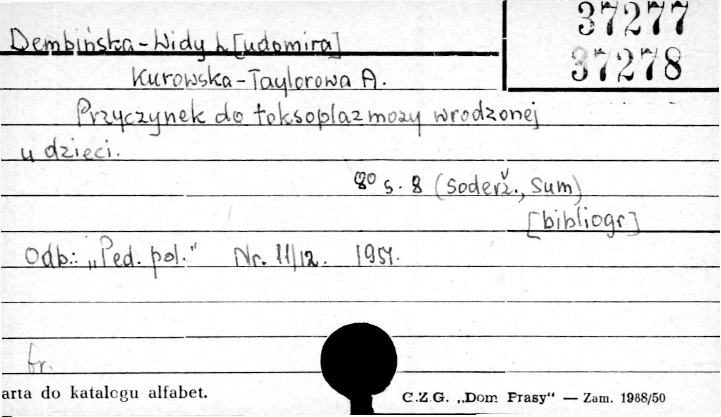 37277
37278
Dembińska-Widy L[udomira]
Kurowska-Taylorowa A.
Przyczynek do toksoplazmozy wrodzonej
u dzieci.
8º s. 8 (Soderž., Sum)
[bibliogr]
Odb.: „Ped. pol.” Nr. 11/12. 1951.
fr.
arta do katalogu alfabet.
C.Z.G. „Dom Prasy” — Zam. 1968/50